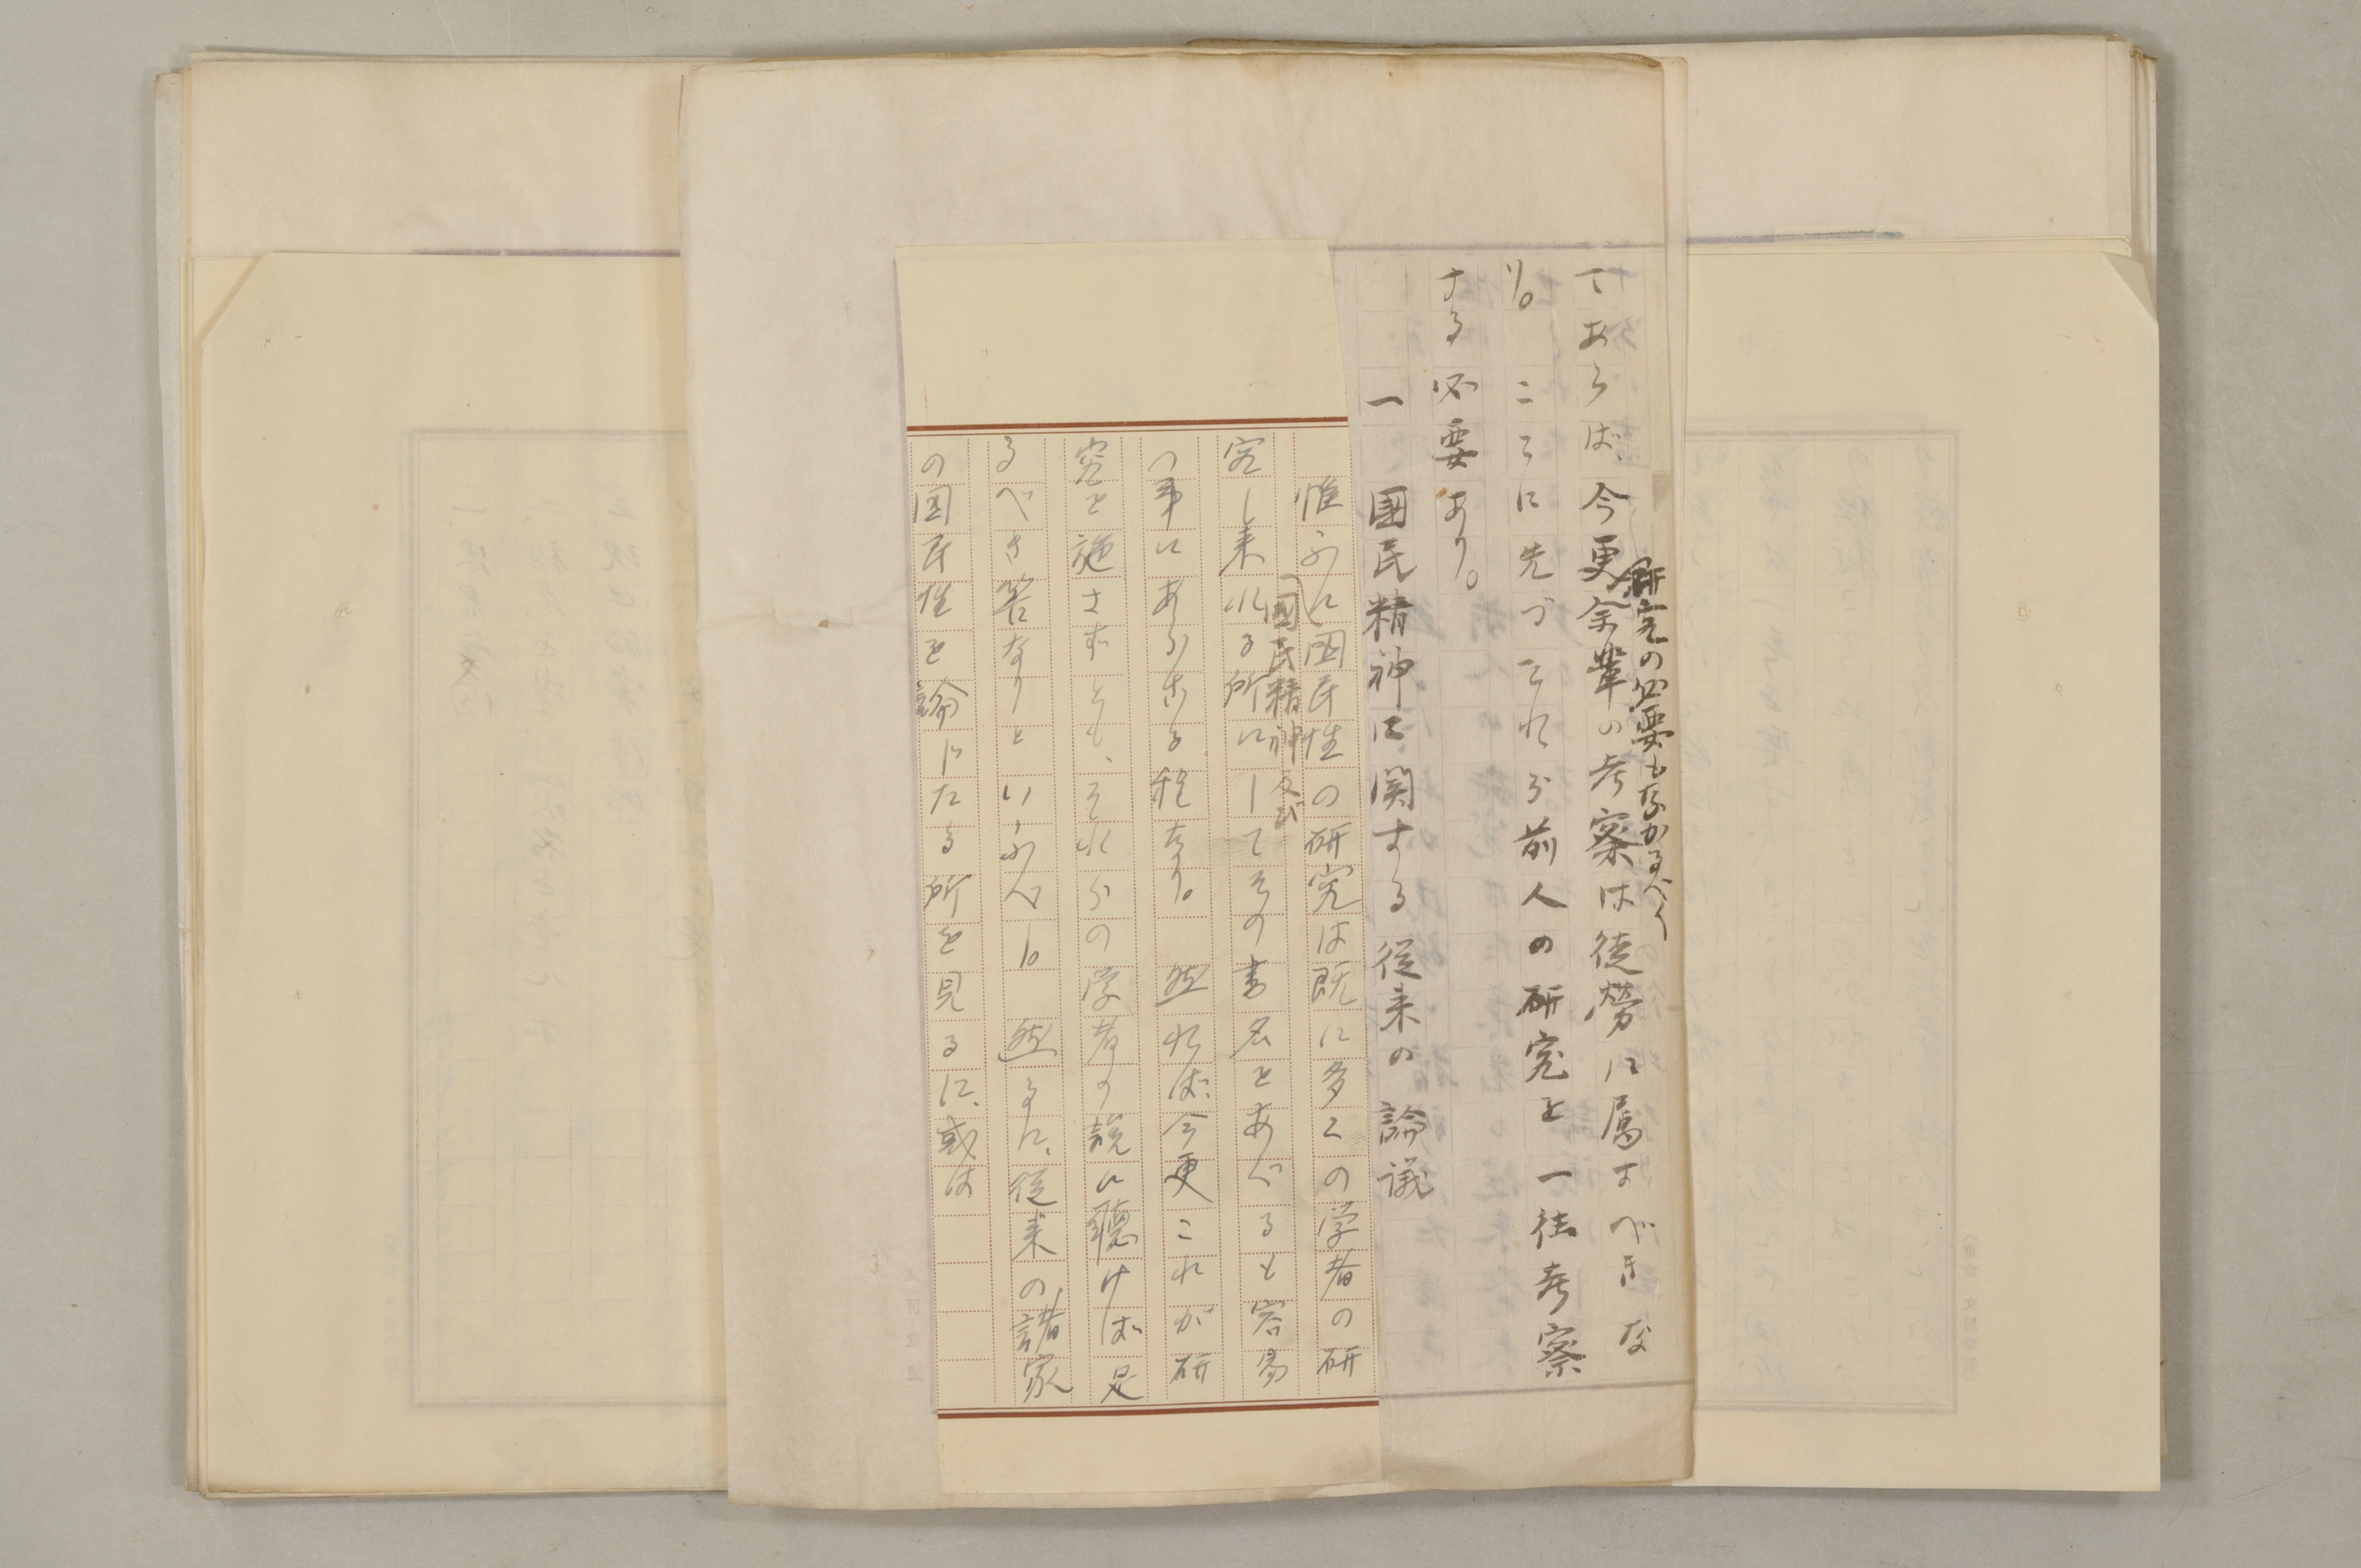 てあらば、今更余輩の考察は徒労に属すべきな
研究の必要もなかるべく
り。ここに先づこれら前人の研究を一往考察
する必要あり。
一 國民精神に関する従来の論議
惟ふに国民性の研究は既に多くの学者の研
「國民精神及び
究し来れる所にしてその書名をあぐるも容易
の事にあらざる程なり。然れば、今更これが研
究を施さずとも、それらの学者の説に聴けば足
るべき筈なりといふべし。然るに、従来の諸家
の国民性を論じたる所を見るに、或は